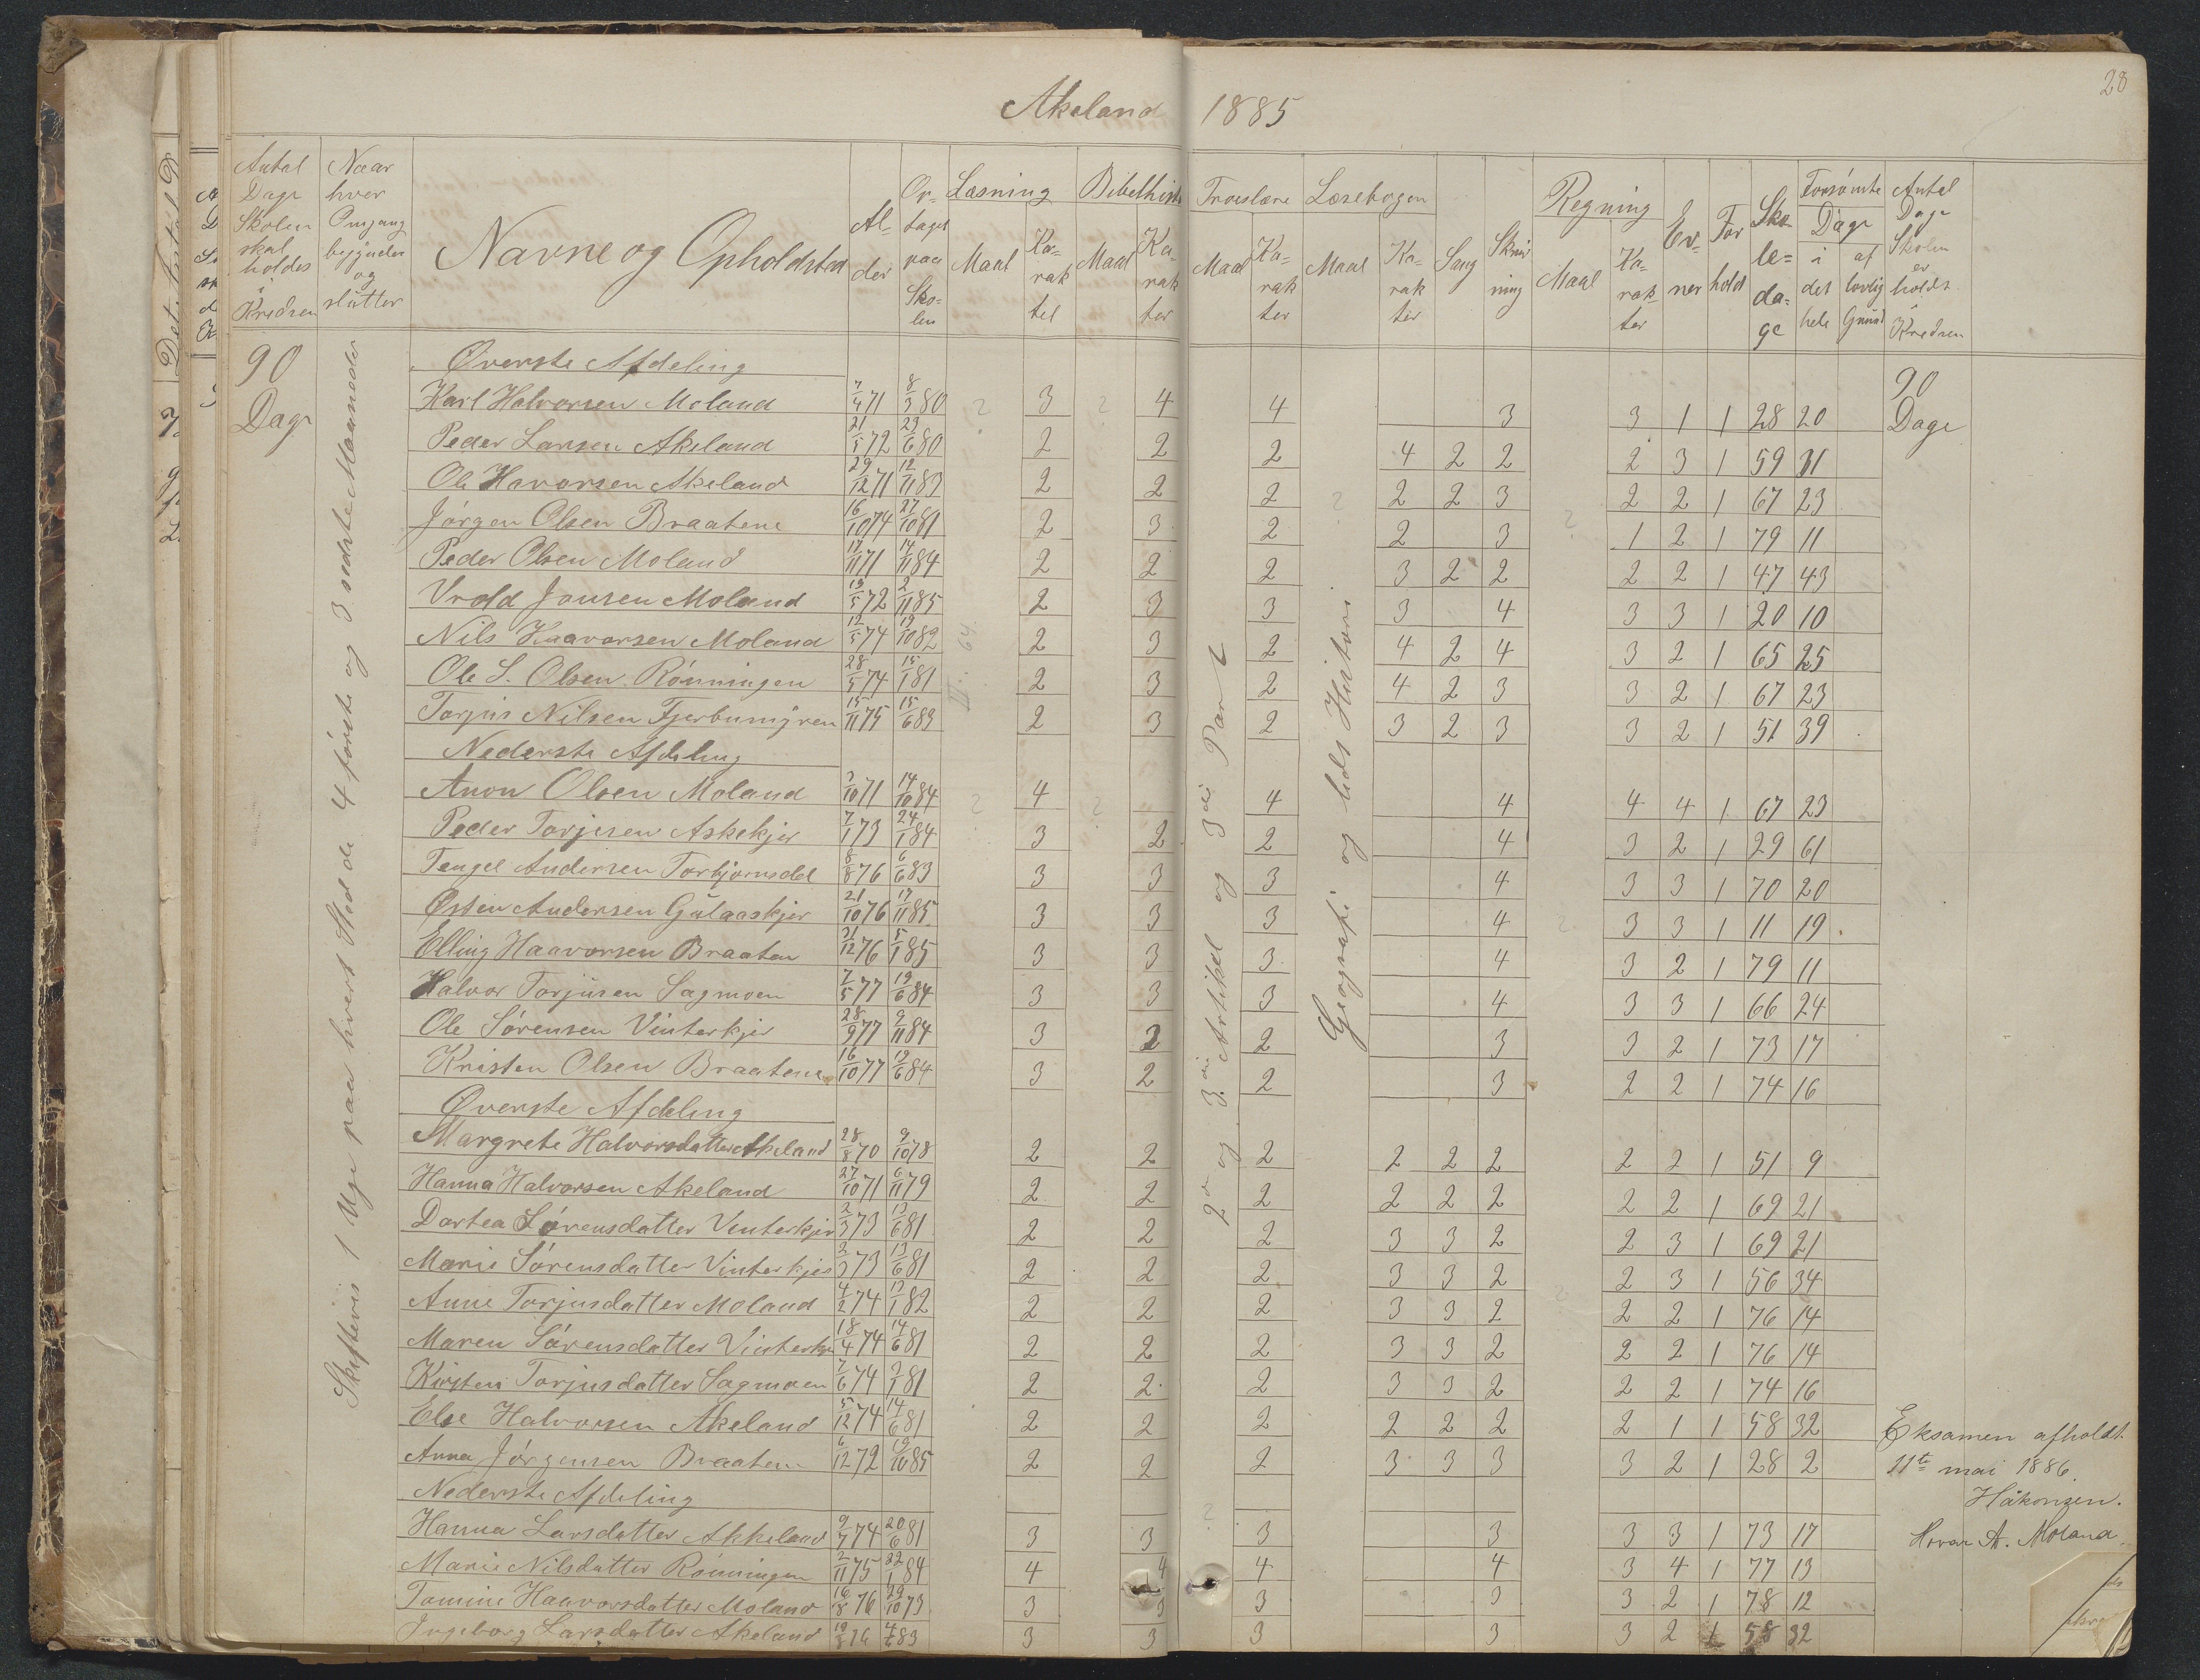 28
Akeland 1885
Antal Dage Skolen skal holdes i Kredsen
Naar hver Omgang begynder og slutter
Navne og Opholdsted
Alder
Optaget paa Skolen
Læsning Maal Karakter
Bibelhist Maal Karakter
Troeslære Maal Karakter
Læsebogen Maal Karakter
Sang
Skrivning
Regning Maal Karakter
Evner
Forhold
Skoledage
Forsømte Dage i det hele af lovlig Grund
Antal Dage Skolen er holdt i Kredsen
90 Dage
90 Dage
Skiftevis 1 Uge paa hvert Sted de 4 første og 3 sidste Maaneder
2den og 3die Artikel og 3die Part
Geografi og lidt Historie
II. 64.
Øverste Afdeling
Karl Halvorsen Moland 7/4 71 8/3 80 3 4 4 3 3 1 1 28 20
Peder Larsen Akeland 21/5 72 29/6 80 2 2 2 4 2 2 2 3 1 59 31
Ole Havorsen Akeland 29/12 71 12/11 83 2 2 2 2 2 3 2 2 1 67 23
Jørgen Olsen Braatene 16/10 74 27/10 81 2 3 2 2 3 1 2 1 79 11
Peder Olsen Moland 17/11 71 14/11 84 2 2 2 3 2 2 2 2 1 47 43
Vrold Jonsen Moland 19/5 72 2/11 85 2 3 3 3 4 3 3 1 20 10
Nils Haavorsen Moland 12/5 74 19/10 82 2 3 2 4 2 4 3 2 1 65 25
Ole S. Olsen Rønningen 28/5 74 15/1 81 2 3 2 4 2 3 3 2 1 67 23
Torjus Nilsen Tjerbumyren 15/11 75 15/6 83 2 3 2 3 2 3 3 2 1 51 39
Nederste Afdeling
Anon Olsen Moland 3/10 71 14/10 84 4 4 4 4 4 1 67 23
Peder Torjusen Askekjer 7/1 73 24/1 84 3 2 2 4 3 2 1 29 61
Tengel Andersen Torbjørnsdal 8/8 76 6/6 83 3 3 3 4 3 3 1 70 20
Østen Andersen Gulaaskjer 21/10 76 17/11 85 3 3 3 4 3 3 1 11 19
Elling Haavorsen Braaten 21/12 76 5/1 85 3 3 3 4 3 2 1 79 11
Halvor Torjusen Sagmoen 7/5 77 19/6 84 3 3 3 4 3 3 1 66 24
Ole Sørensen Vinterkjer 28/9 77 9/11 84 3 2 2 3 3 2 1 73 17
Kristen Olsen Braatene 16/10 77 19/6 84 3 2 2 3 2 2 1 74 16
Øverste Afdeling
Margrete Halvorsdatter Akeland 28/8 70 9/10 78 2 2 2 2 2 2 2 2 1 51 9
Hanna Halvorsen Akeland 27/10 71 6/11 79 2 2 2 2 2 2 2 2 1 69 21
Dortea Sørensdatter Vinterkjer 2/3 73 13/6 81 2 2 2 3 3 2 2 3 1 69 21
Marie Sørensdatter Vinterkjer 2/3 73 13/6 81 2 2 2 3 3 2 2 3 1 56 34
Anne Torjusdatter Moland 4/2 74 13/1 82 2 2 2 3 3 2 2 2 1 76 14
Maren Sørensdatter Vinterkjer 18/4 74 14/6 81 2 2 2 3 3 2 2 2 1 76 14
Kirsten Torjusdatter Sagmoen 7/6 74 3/1 81 2 2 2 3 3 2 2 2 1 74 16
Else Halvorsen Akeland 5/12 74 14/6 81 2 2 2 2 2 2 2 1 1 58 32
Anna Jørgensen Braatene 6/12 72 19/10 85 2 2 2 3 3 3 3 2 1 28 2
Nederste Afdeling
Hanna Larsdatter Akkeland 9/7 74 20/6 81 3 3 3 3 3 3 1 73 17
Marie Nilsdatter Rønningen 2/11 75 22/1 84 4 4 4 4 3 4 1 77 13
Tomine Haavorsdatter Moland 16/8 76 29/10 73 3 3 3 3 3 2 1 78 12
Ingeborg Larsdatter Akeland 19/8 76 4/6 83 3 3 3 3 3 2 1 58 32
Eksamen afholdt
11te mai 1886.
Håkonsen.
Hovar A. Moland